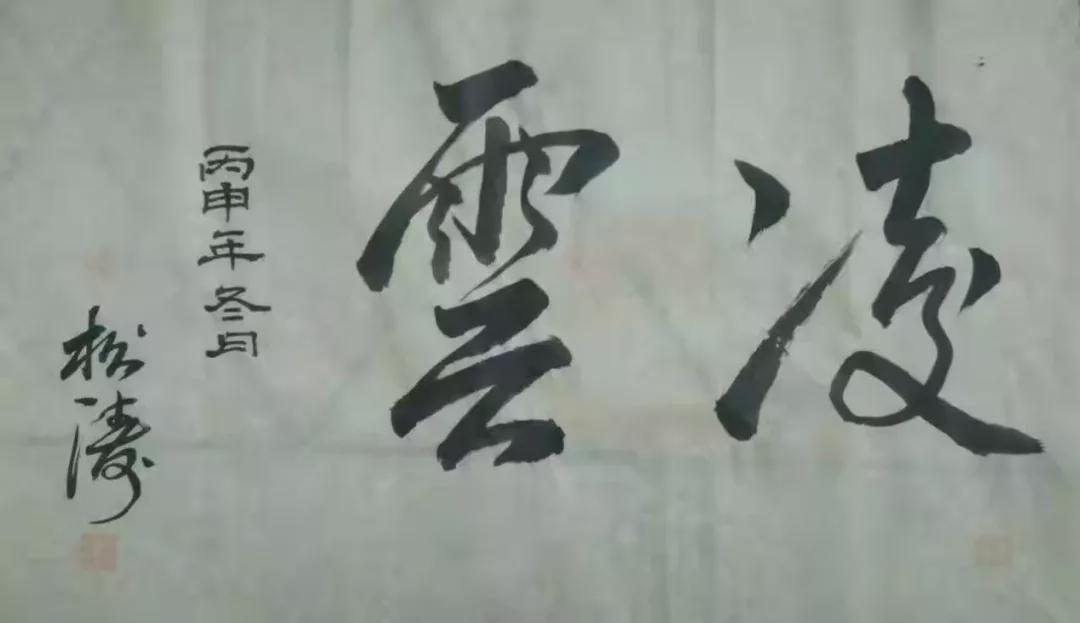 凌雲
丙申年冬月
松濤